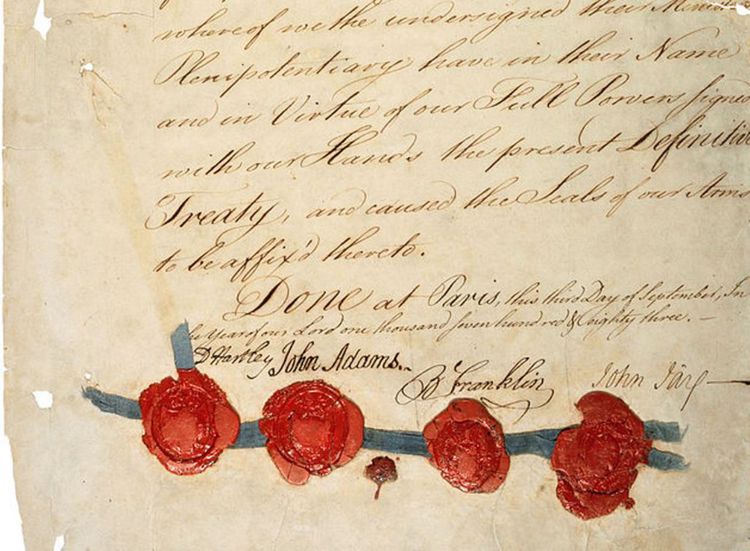 whereof we the undersigned their Ministers
Plenipotentiary have in their Name
and in Virtue of our Full Powers signed
with our Hands the present Definitive
Treaty, and caused the Seals of our Arms
to be affix'd thereto.
Done at Paris, this third Day of September, In
the Year of our Lord one thousand seven hundred & eighty three. —
D Hartley John Adams. B Franklin John Jay —